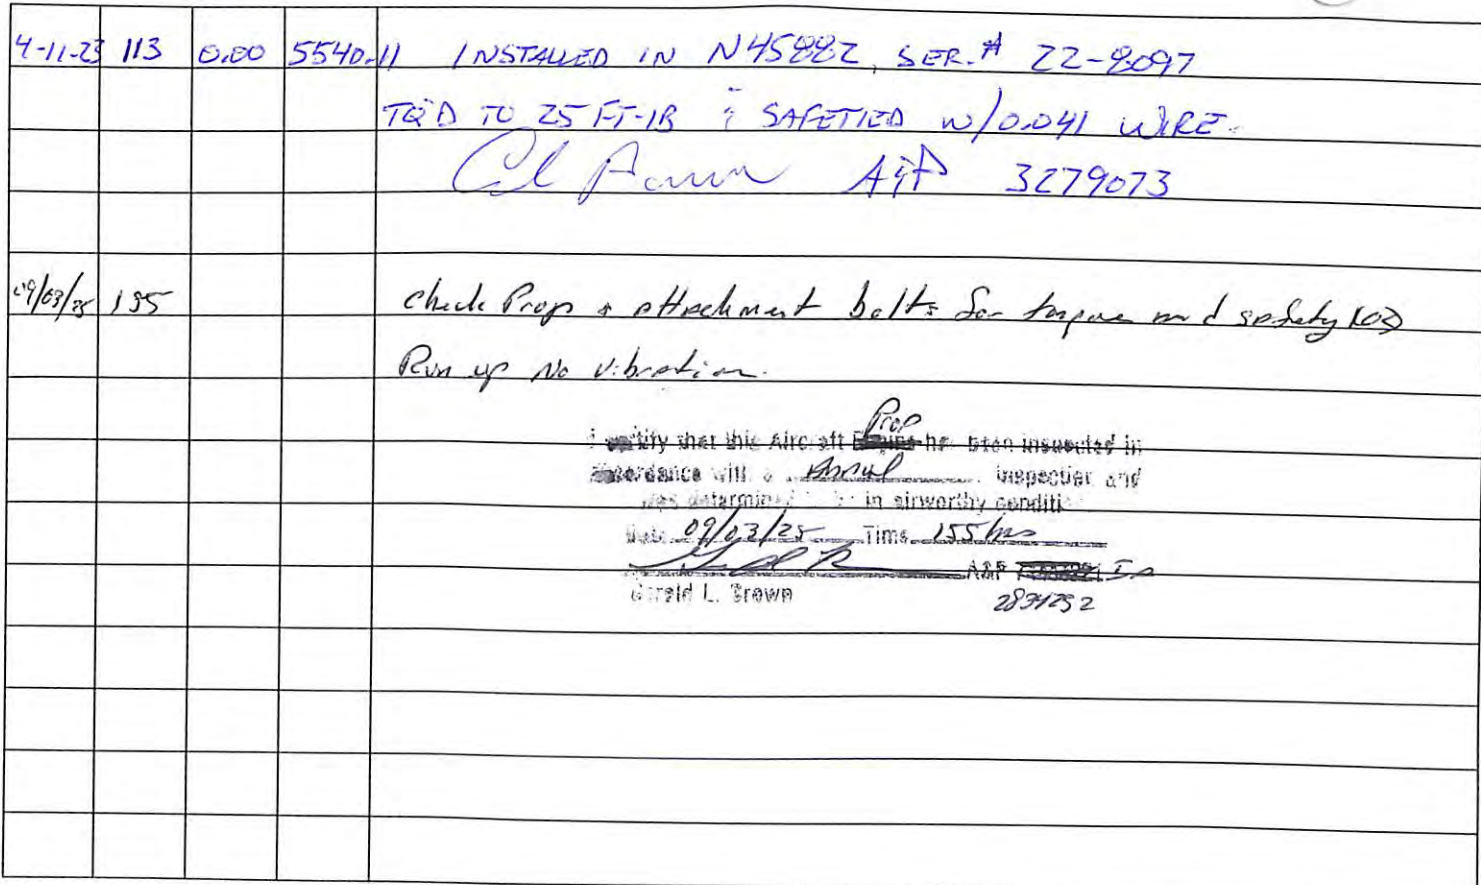 4-11-23 113 0.00 5540.11 INSTALLED IN N4588Z, SER.# 22-8097
TQ'D TO 25 FT-LB & SAFETIED W/0.041 WIRE.
A&P 3279073
09/03/25 155 Check Prop & attachment bolts for torque and safety
Run up No vibration.
Prop
I certify that this Aircraft Engine has been inspected in
accordance with a Annual inspection and
was determined to be in airworthy conditi
Date 09/03/25 Time 155 hrs
A&P IA
Gerald L. Brown